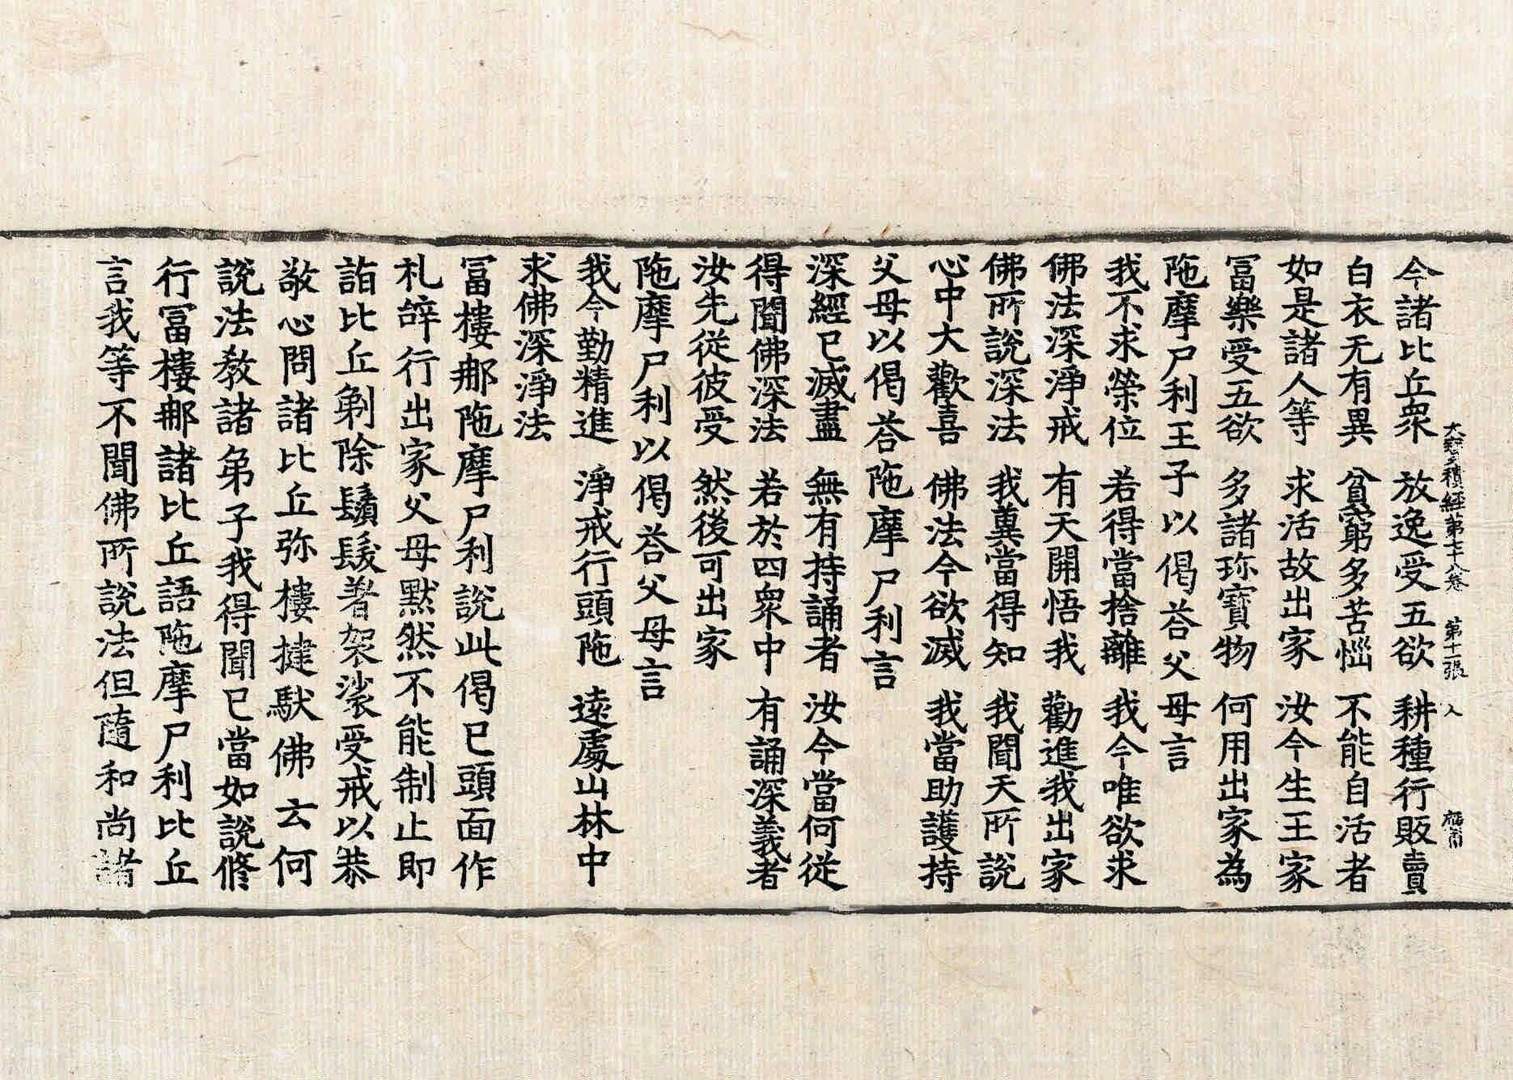 大寶積經第七十八卷 第十一張 人
今諸比丘眾 放逸受五欲 耕種行販賣
白衣无有異 貧窮多苦惱 不能自活者
如是諸人等 求活故出家 汝今生王家
冨樂受五欲 多諸珎寶物 何用出家為
陁摩尸利王子以偈荅父母言
我不求榮位 若得當捨離 我今唯欲求
佛法深淨戒 有天開悟我 勸進我出家
佛所說深法 我冀當得知 我聞天所說
心中大歡喜 佛法今欲滅 我當助護持
父母以偈荅陁摩尸利言
深經已滅盡 無有持誦者 汝今當何從
得聞佛深法 若於四眾中 有誦深義者
汝先從彼受 然後可出家
陁摩尸利以偈荅父母言
我今勤精進 淨戒行頭陁 遠處山林中
求佛深淨法
冨樓那陁摩尸利說此偈已頭面作
礼辝行出家父母黙然不能制止即
詣比丘剃除鬚髮著袈裟受戒以恭
敬心問諸比丘弥樓揵馱佛云何
說法教諸弟子我得聞已當如說修
行冨樓那諸比丘語陁摩尸利比丘
言我等不聞佛所說法但隨和尚諸